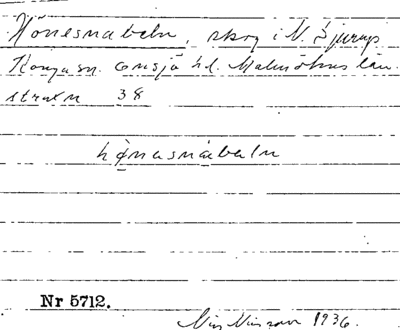 Hönesnabeln, skog i N. Ljurup
Konga sn. Onsjö hd. Malmöhus län.
38
hǫnasnabeln
Nr 5712.
Nils Nilsson 1936.